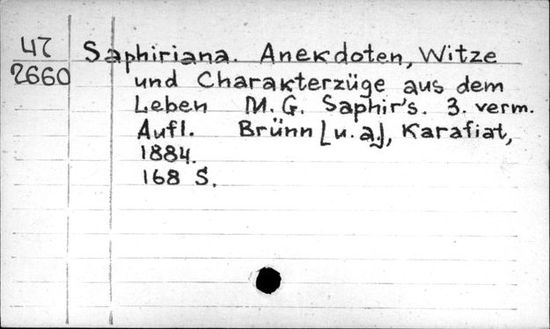 47
2660
Saphiriana. Anekdoten, Witze
und Charakterzüge aus dem
Leben M. G. Saphir's. 3. verm.
Aufl. Brünn [u. a.], Karafiat,
1884.
168 S.